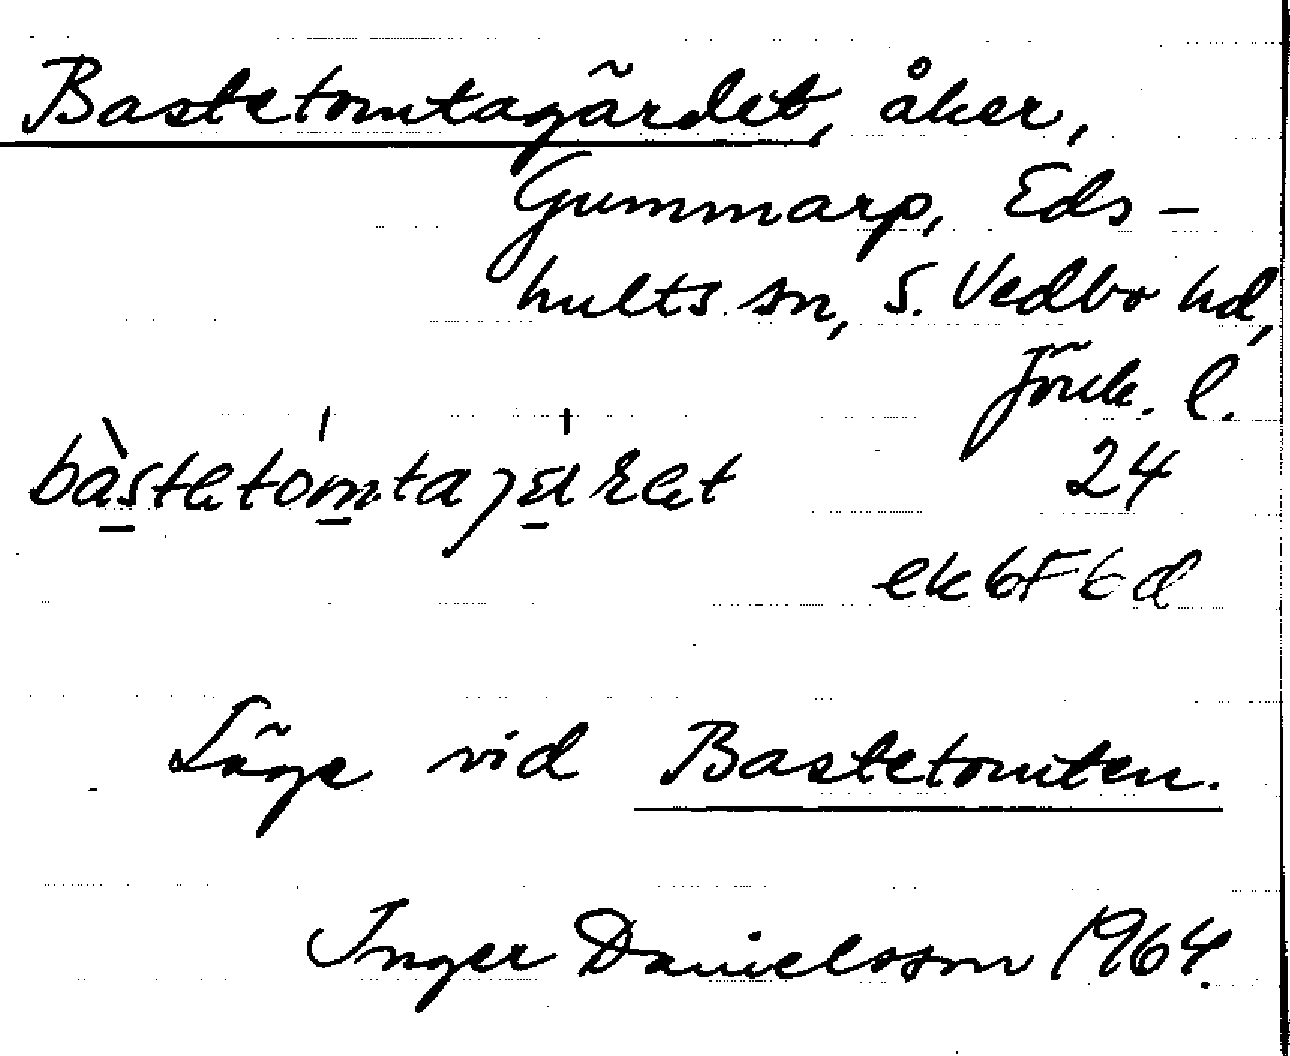 Bastetomtagärdet, åker,
Gummarp, Eds-
hults sn, S. Vedbo hd,
Jönk. l.
24
ek6F6d
Läge vid Bastetomten.
Inger Danielsson 1964.